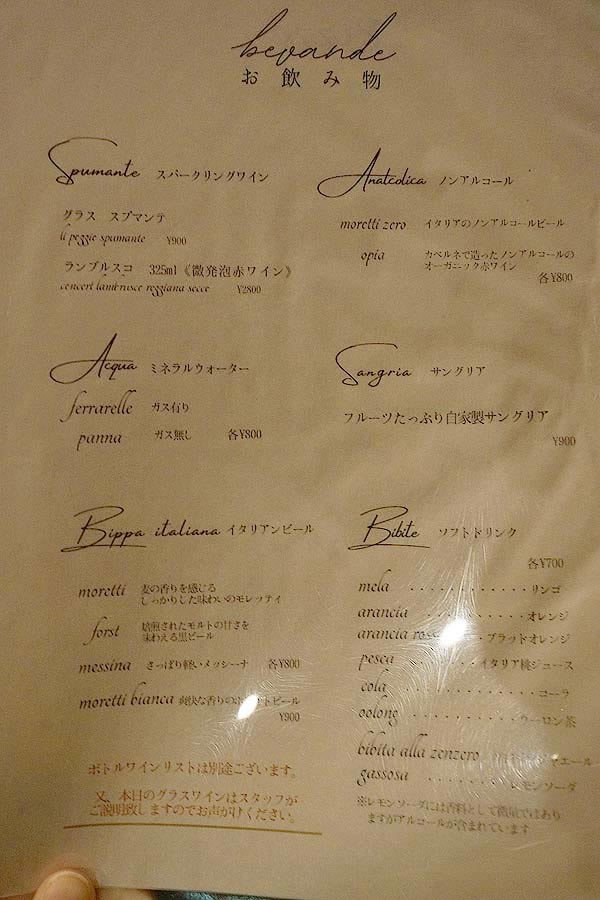 bevande
お飲み物
Spumante スパークリングワイン
グラス スプマンテ
li peggie spumante ¥900
ランブルスコ 325ml《微発泡赤ワイン》
concert lambrusce reggiana secce ¥2800
Acqua ミネラルウォーター
ferrarelle ガス有り
panna ガス無し 各¥800
Bippa italiana イタリアンビール
moretti 麦の香りを感じる
しっかりした味わいのモレッティ
forst 焙煎されたモルトの甘さを
味わえる黒ビール
messina さっぱり軽いメッシーナ 各¥800
moretti bianca 爽快な香りの ビール
¥900
ボトルワインリストは別途ございます。
又、本日のグラスワインはスタッフが
ご説明致しますのでお声がけください。
Analcolica ノンアルコール
moretti zero イタリアのノンアルコールビール
opia カベルネで造ったノンアルコールの
オーガニック赤ワイン
各¥800
Sangria サングリア
フルーツたっぷり自家製サングリア
¥900
Bibite ソフトドリンク
各¥700
mela ・・・・・・・・・・・・リンゴ
arancia ・・・・・・・・・・オレンジ
arancia ・・ブラッドオレンジ
pesca ・・・・・・・イタリア桃ジュース
cola ・・・・・・・・・・・・コーラ
oolong ・・・・・・・・・ウーロン茶
bibita alla zenzero エール
gassosa ・・・・・・・レモンソーダ
※レモンソーダには香料として微量ではあり
ますがアルコールが含まれています